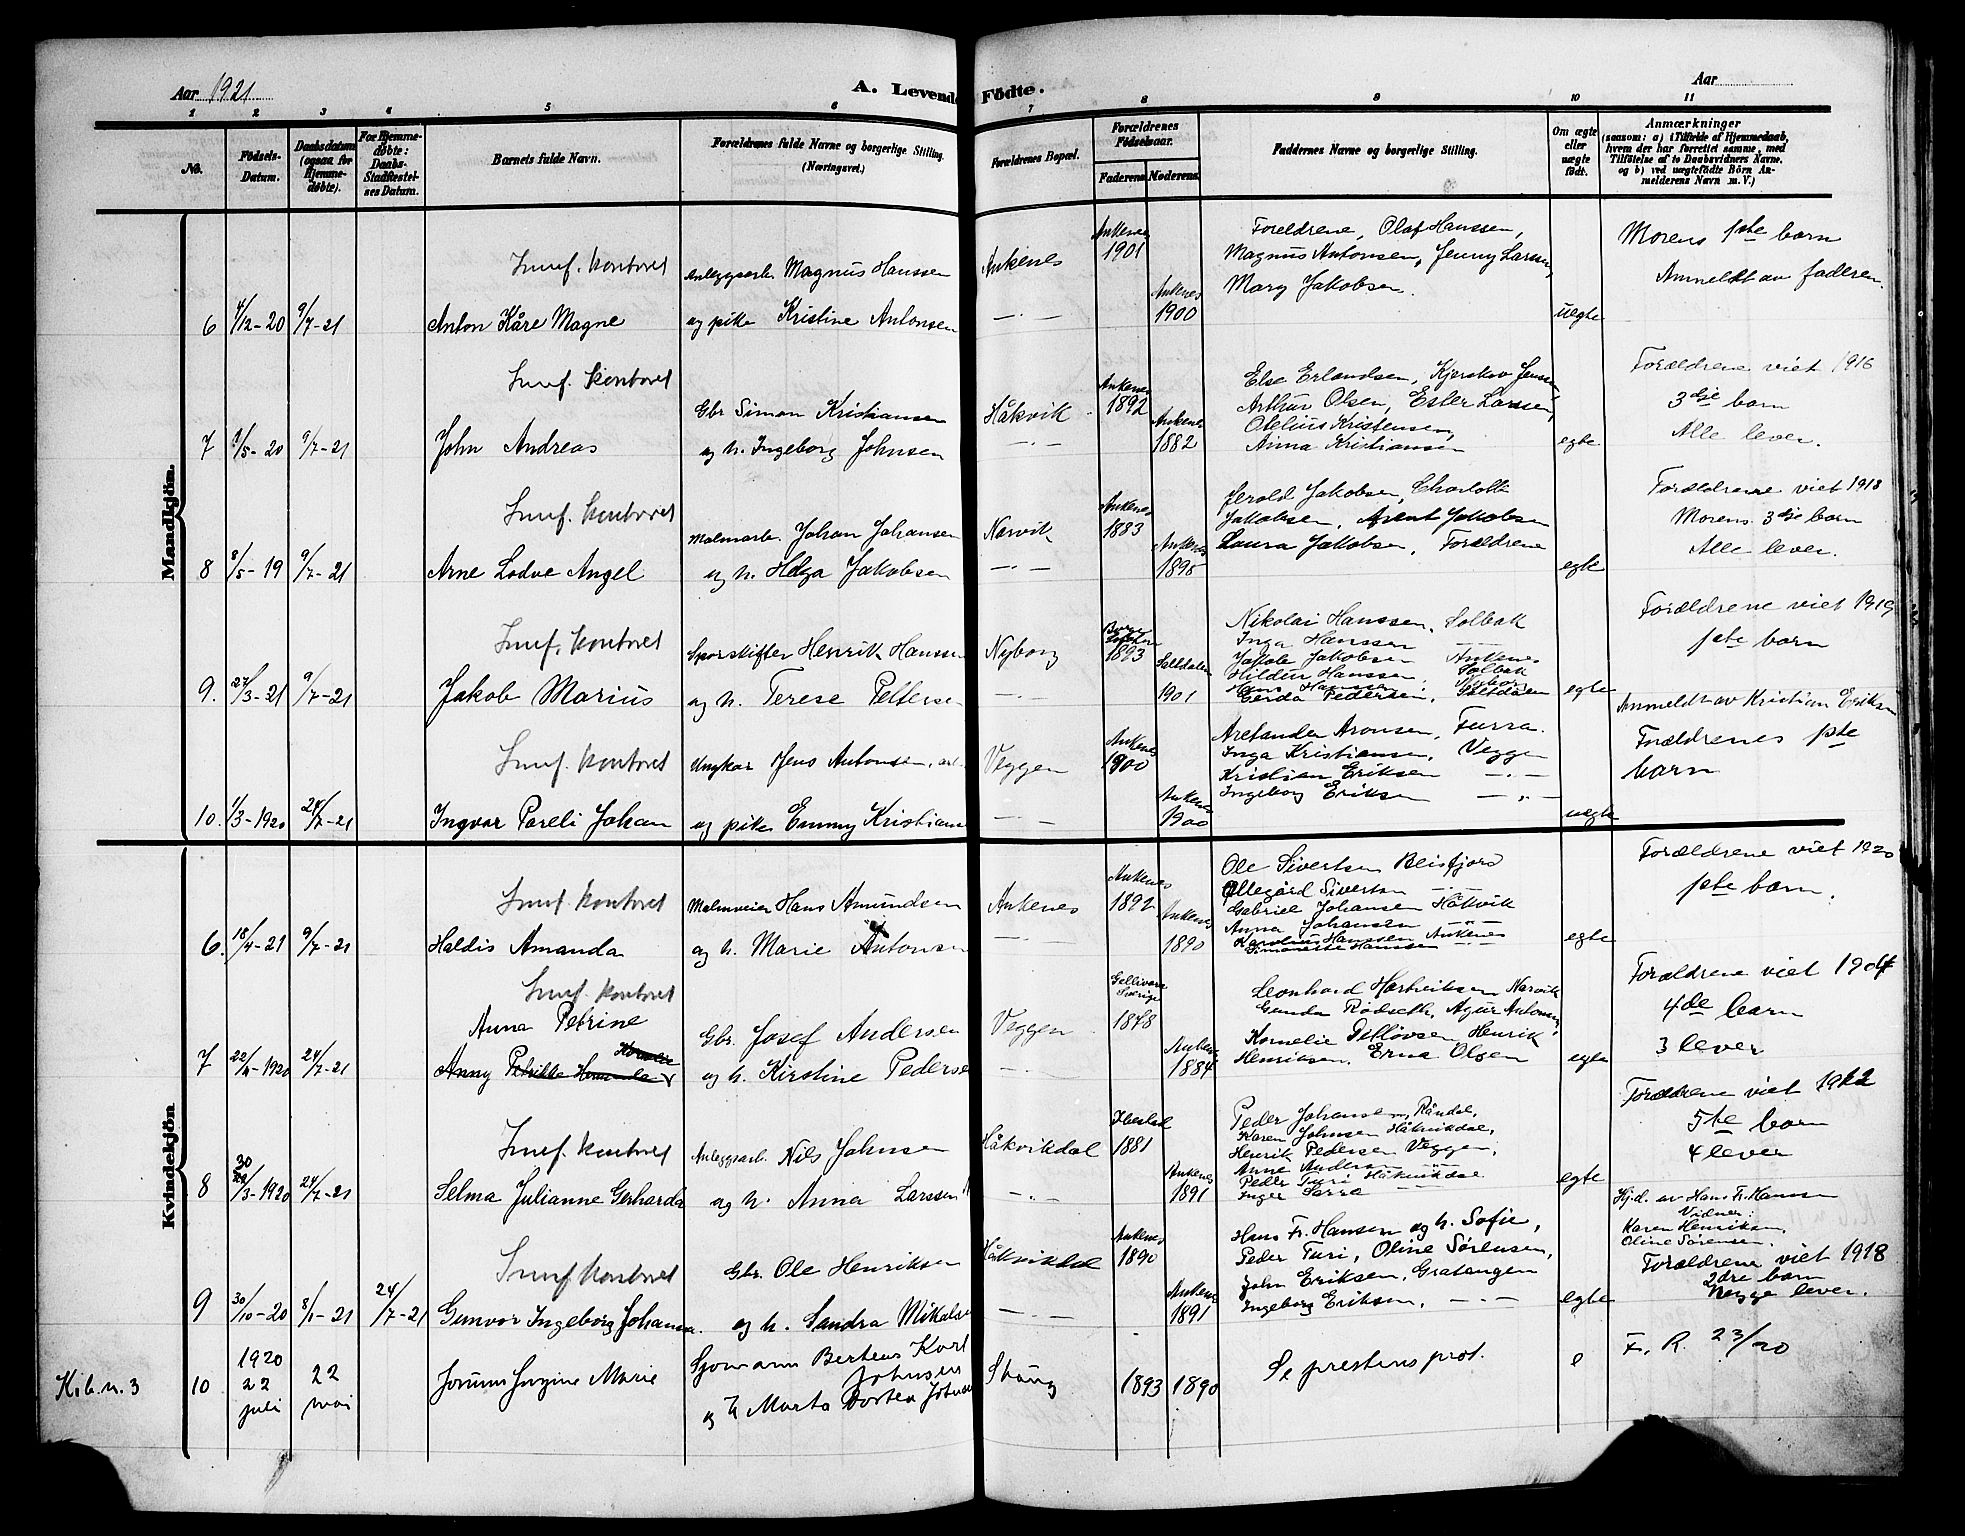 Aar 1921
A. Levende Födte.
Aar
1 2 3 4 5 6 7 8 9 10 11
No.
Födsels-Datum.
Daabsdatum (ogsaa for Hjemmedøbte).
For Hjemmedøbte: Daabs-Stadfæstelses Datum.
Barnets fulde Navn.
Forældrenes fulde Navne og borgerlige Stilling. (Næringsvei.)
Forældrenes Bopæl.
Forældrenes Födselsaar.
Faderens Moderens
Faddernes Navne og borgerlige Stilling.
Om ægte eller uægte födt.
Anmærkninger
(saasom: a) i Tilfælde af Hjemmedaab, hvem der har forrettet samme, med Tilföielse af to Daabsvidners Navne, og b) ved uægtefödte Börn Anmelderens Navn m. V.)
Mandkjön.
Innf. kontoret
6 4/12-20 9/7-21 Anton Kåre Magne
Anleggsarb. Magnus Hanssen
og pike Kristine Antonsen
Ankenes
Ankenes 1901
Ankenes 1900
Foreldrene, Olaf Hanssen,
Magnus Antonsen, Jenny Larsen,
Mary Jakobsen.
uegte
Morens 1ste barn
Anmeldt av faderen.
Innf. kontoret
7 9/7-21 John Andreas
Gbr. Simon Kristiansen
og h. Ingeborg Johnsen
Håkvik
Ankenes 1892
Ankenes 1882
Else Erlandsen,
Arthur Olsen, Ester Larsen,
Otelius Kristensen,
Anna Kristiansen
egte
Forældrene viet 1916
3dje barn
Alle lever.
Innf. kontoret
8 8/5-19 9/7-21 Arne Lodve Angel
Malmarb. Johan Johansen
og h. Helga Jakobsen
Narvik
Ankenes 1883
Ankenes 1895
Jerold Jakobsen, Charlotte
Jakobsen, Arent Jakobsen
Laura Jakobsen, Forældrene
egte
Forældrene viet 1918
Morens 3dje barn
Alle lever.
Innf. kontoret
9. 27/3-21 9/7-21 Jakob Marius
Sporskifter Henrik Hanssen
og h. Terese Petterse
Nyborg
1893
Saltdalen 1901
Nikolai Hanssen, Solbak
Inga Hanssen
Jakob Jakobsen Ankenes
Hildur Hanssen, Solbak
Hans Hanssen Nyborg
Gerda Pedersen, Saltdalen
egte
Forældrene viet 1919
1ste barn
Anmeldt av Kristian Eriksen
Innf. kontoret
10. 1/3-1920 24/7-21 Ingvar Pareli Johan
Ungkar Jens Antonsen,
og pike Emmy Kristians
Veggen
Ankenes 1900
Ankenes 1900
Aretander Aronsen, Furra.
Inga Kristiansen, Veggen
Kristian Eriksen
Ingeborg Eriksen
uegte
Forældrenes 1ste
barn
Kvindekjön
Innf. kontoret
6. 18/4-21 9/7-21 Haldis Amanda
Malmveier Hans Amundsen
og h. Marie Antonsen
Ankenes
Ankenes 1892
Ankenes 1890
Ole Sivertsen Beisfjord
Ollegård Sivertsen
Gabriel Johansen Håkvik
Anna Johansen
Karolius Hanssen Ankenes
Simonette Hanssen
egte
Forældrene viet 1920
1ste barn.
Innf. kontoret
Anna Petrine
7 22/4-1920 24/7-21 Anny Petrikke
Gbr. Josef Andersen
og h. Kirstine Pederse
Veggen
Gellivare Sverige 1878
Ankenes 1884
Leonhard Hartviksen Narvik
Gunda Rødseth, Agur Antonsen,
Kornelie Detløvsen, Henrik
Henriksen, Erna Olsen
egte
Forældrene viet 1904
4de barn
3 lever
Innf. kontoret
8 30/3-1920 24/7-21 Selma Julianne Gerharda
Anleggsarb. Nils Johnsen
og h. Anna Larssen
Håkvikdal
Ibestad 1881
Ankenes 1891
Peder Johansen, Råndal,
Karen Johnsen Håkvikdal,
Henrik Pedersen Veggen,
Anne Andersen
Peder Turi Håkvikdal
Inger Sarra
egte
Forældrene viet 1912
5te barn
4 lever
Innf. kontoret
9 30/10-20 8/1-21 24/7-21 Gunvor Ingeborg Johanna.
Gbr. Ole Henriksen
og h. Sandra Mikalse
Håkvikdal
Ankenes 1890
Ankenes 1891
Hans Fr. Hansen og h. Sofie,
Peder Turi, Oline Sørensen,
John Eriksen, Gratangen
Ingeborg Eriksen,
egte
Hj.d. av Hans Fr. Hansen
Vidner:
Karen Henriksen
Oline Sørensen.
Forældrene viet 1918
2dre barn
Begge lever.
Kib. n. 3
10 1920 22 juli 22 mai Jorunn Jorgine Marie
Sjømann Berteus Karl
Johnsen
og h Marta Dortea Johnse
Stang
1893 1890
Se prestens prot.
e
F. R. 23/20